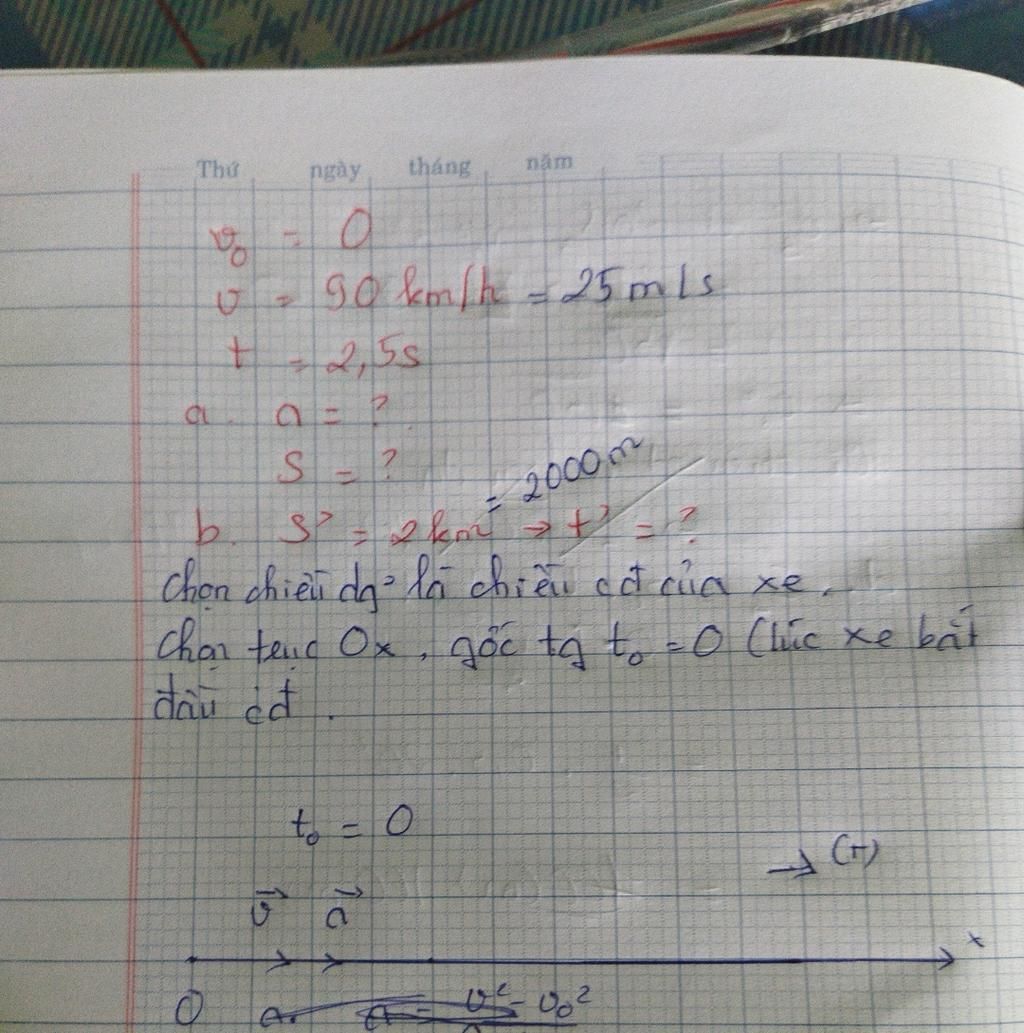 Thứ ngày tháng năm
v₀ = 0
v = 90 km/h = 25 m/s
t = 2,5s
a. a = ?
S = ?
= 2000m
b. S' = 2km → t' = ?
Chọn chiều dg² là chiều cđ của xe.
Chọn trục Ox, gốc tg t₀ = 0 (lúc xe bắt
đầu cđ.
t₀ = 0
→ (+)
v⃗ a⃗
x
O a. a = v² - v₀²